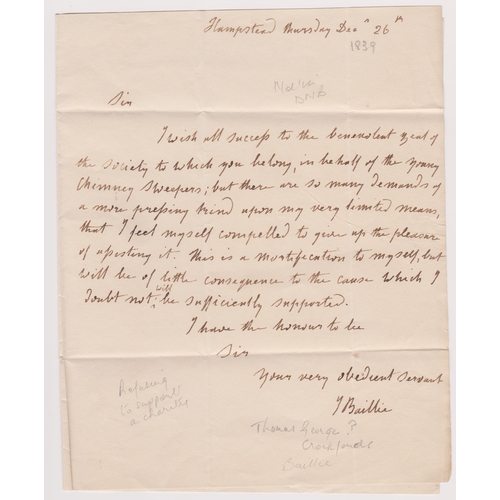 Hampstead Thursday Decr 26th
1839
Not in
DNB
Sir
I wish all success to the benevolent zeal of
the society to which you belong, in behalf of the young
Chimney Sweepers; but there are so many demands of
a more pressing kind upon my very limited means,
that I feel myself compelled to give up the pleasure
of assisting it. This is a mortification to myself, but
will be of little consequence to the cause which I
doubt not will be sufficiently supported.
I have the honour to be
Sir
Your very obedient servant
J Baillie
Refusing
to support
a charity
Thomas George?
Baillie